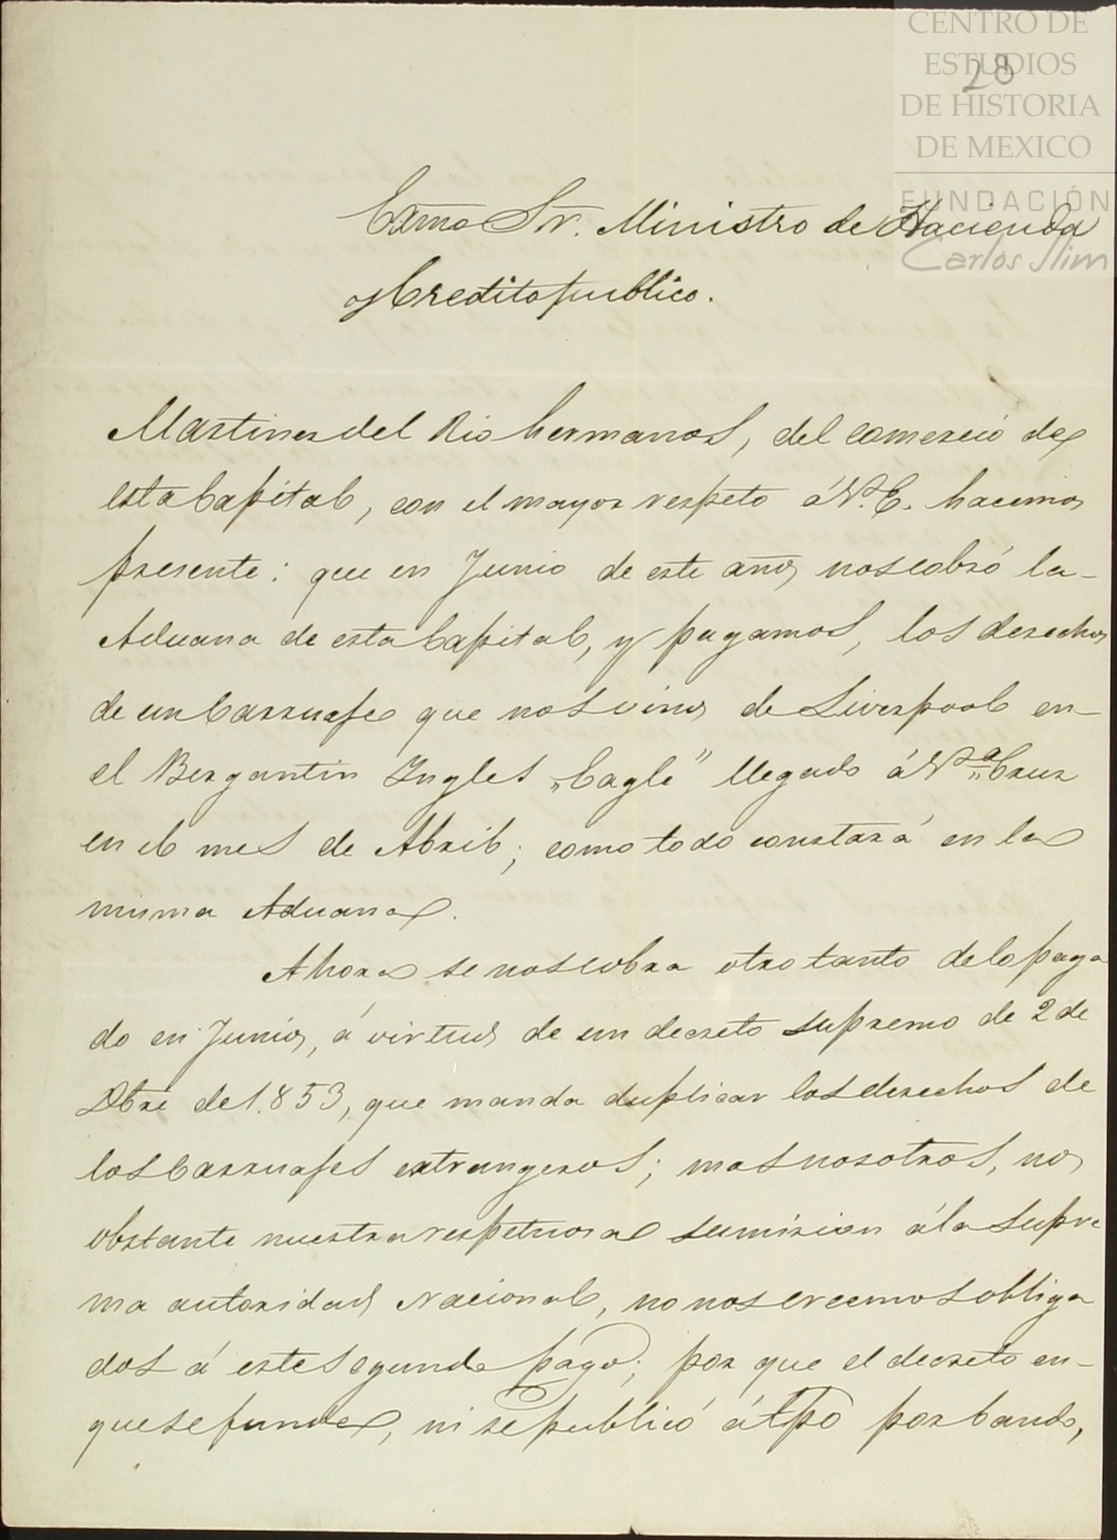 CENTRO DE
ESTUDIOS
DE HISTORIA
DE MEXICO
FUNDACIÓN
Carlos Slim
28
Exmo Sr. Ministro de Hacienda
y Credito publico.
Martinez del Rio hermanos, del comercio de
esta Capital, con el mayor respeto á V. E. hacemos
presente: que en Junio de este año nos cobró la
Aduana de esta Capital, y pagamos, los derechos
de un Carruaje que nos vino de Liverpool en
el Bergantin Ingles „Eagle" llegado á Va Cruz
en el mes de Abril; como todo constará en la
misma Aduana.
Ahora se nos cobra otro tanto de lo paga
do en Junio, á virtud de un decreto supremo de 2 de
Dbre de 1.853, que manda duplicar los derechos de
los Carruajes extrangeros; mas nosotros, no
obstante nuestra respetuosa sumision á la supre
ma autoridad Nacional, no nos creemos obliga
dos á este segundo pago; por que el decreto en
que se funda, ni se publicó á tpo por bando,